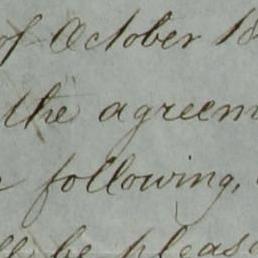 of October 18
the agreem
following,
ll be please